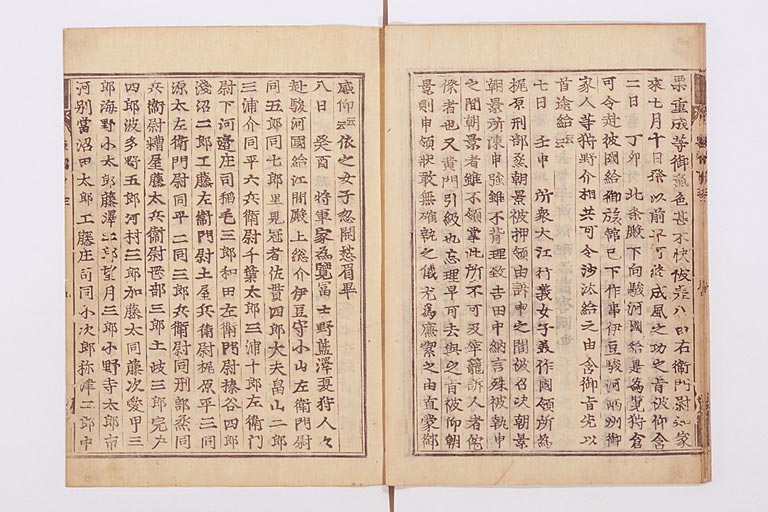 栗重成等御氣色甚不快彼等八田右衛門尉知家
來七月十日以前早可終成風之功之旨被仰含
二日 丁卯 北条殿下向駿河國給是為覽狩倉
可令赴彼國給御旅館已下作事伊豆駿河兩州御
家人等狩野介相共可令沙汰給之由含御旨先以
首途給云々
七日 壬申 所衆大江村義女子美作國領所為
梶原刑部丞朝景被押領由訴申之間被召决朝景
朝景所陳申強雖不背理致吉田中納言殊被執申
之間朝景者雖不領掌此所不可及窂籠訴人者侘
傺者也又黄門引級也忘理早可去與之旨被仰朝
景則申領狀敢無確執之儀尤為廉潔之由直蒙御
感仰云々依之女子忽開愁眉畢
八日 癸酉 將軍家為覽冨士野藍澤夏狩人々
赴駿河國給江間殿上総介伊豆守小山左衛門尉
同五郎同七郎里見冠者佐貫四郎大夫畠山二郎
三浦介同平六兵衛尉千葉太郎三浦十郎左衛門
尉下河邊庄司稲毛三郎和田左衛門尉榛谷四郎
淺沼二郎工藤左衛門尉土屋兵衛尉梶原平三同
源太左衛門尉同平二同三郎兵衛尉同刑部丞同
兵衛尉糟屋藤太兵衛尉岡部三郎土岐三郎宍戸
四郎波多野五郎河村三郎加藤太同藤次愛甲三
郎海野小太郎藤澤二郎望月三郎小野寺太郎市
河別當沼田太郎工藤庄司同小次郎祢津二郎中